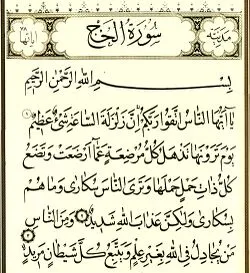 سُورَةُ الْحَجِّ
بِسْمِ اللهِ الرَّحْمٰنِ الرَّحِيْمِ
يَا أَيُّهَا النَّاسُ اتَّقُوا رَبَّكُمْ إِنَّ زَلْزَلَةَ السَّاعَةِ شَيْءٌ عَظِيمٌ
يَوْمَ تَرَوْنَهَا تَذْهَلُ كُلُّ مُرْضِعَةٍ عَمَّا أَرْضَعَتْ وَتَضَعُ
كُلُّ ذَاتِ حَمْلٍ حَمْلَهَا وَتَرَى النَّاسَ سُكَارَى وَمَا هُمْ
بِسُكَارَى وَلَكِنَّ عَذَابَ اللهِ شَدِيدٌ وَمِنَ النَّاسِ
مَنْ يُجَادِلُ فِي اللهِ بِغَيْرِ عِلْمٍ وَيَتَّبِعُ كُلَّ شَيْطَانٍ مَرِيدٍ